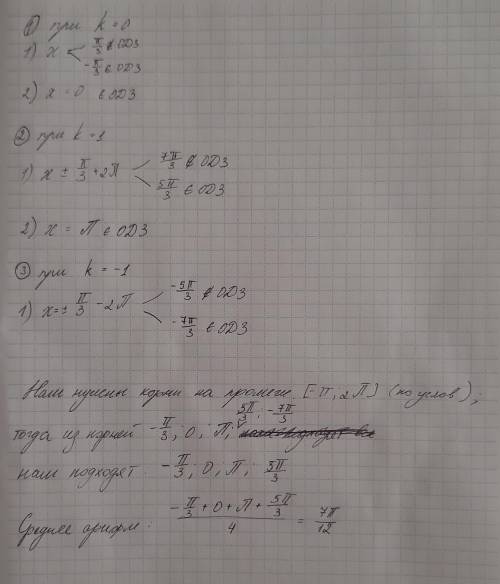 ① при k = 0
1) x π/3 ∉ ОДЗ
-π/3 ∈ ОДЗ
2) x = 0 ∈ ОДЗ
② при k = 1
1) x ± π/3 + 2π 7π/3 ∉ ОДЗ
5π/3 ∈ ОДЗ
2) x = π ∈ ОДЗ
③ при k = -1
1) x = ± π/3 - 2π -5π/3 ∉ ОДЗ
-7π/3 ∈ ОДЗ
Нам нужны корни на промеж. [-π, 2π] (по услов);
тогда из корней -π/3; 0; π; 5π/3; -7π/3
нам подходят -π/3; 0; π; 5π/3
Среднее арифм: (-π/3 + 0 + π + 5π/3)/4 = 7π/12